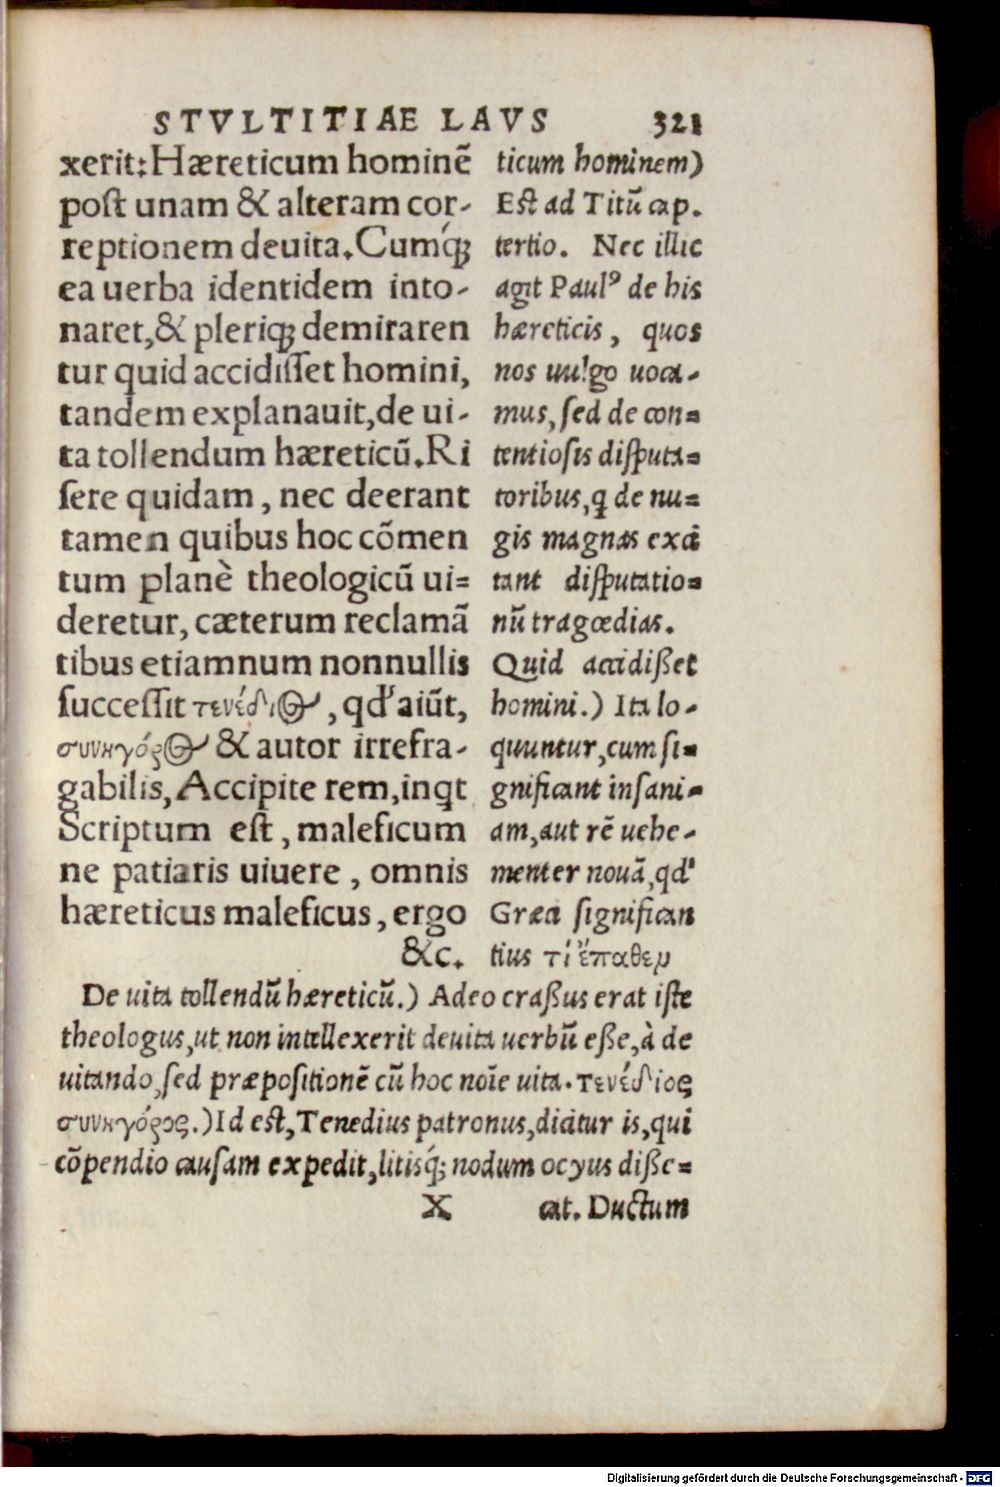 STVLTITIAE LAVS 321
xerit: Hæreticum hominẽ
post unam & alteram cor-
reptionem deuita. Cumq́;
ea uerba identidem into-
naret, & pleriq; demiraren
tur quid accidisset homini,
tandem explanauit, de ui-
ta tollendum hæreticũ. Ri
sere quidam, nec deerant
tamen quibus hoc cõmen
tum planè theologicũ ui=
deretur, cæterum reclamã
tibus etiamnum nonnullis
successit τενέδιος, qd' aiũt,
συνηγόρος & autor irrefra-
gabilis, Accipite rem, inqt
Scriptum est, maleficum
ne patiaris uiuere, omnis
hæreticus maleficus, ergo
&c.
ticum hominem)
Est ad Titũ cap.
tertio. Nec illic
agit Paulꝰ de his
hæreticis, quos
nos uulgo uoca-
mus, sed de con=
tentiosis disputa=
toribus, q de nu=
gis magnas exci
tant disputatio=
nũ tragœdias.
Quid accidißet
homini.) Ita lo-
quuntur, cum si=
gnificant insani-
am, aut rẽ uehe-
menter nouã, qd'
Græci significan
tius τί ἔπαθεν
De uita tollendũ hæreticũ.) Adeo craßus erat iste
theologus, ut non intellexerit deuita uerbũ eße, à de
uitando, sed præpositionẽ cũ hoc noĩe uita. τενέδιος
συνηγόρος.) Id est, Tenedius patronus, dicitur is, qui
cõpendio causam expedit, litisq́; nodum ocyus diße=
X cat. Ductum
Digitalisierung gefördert durch die Deutsche Forschungsgemeinschaft - DFG